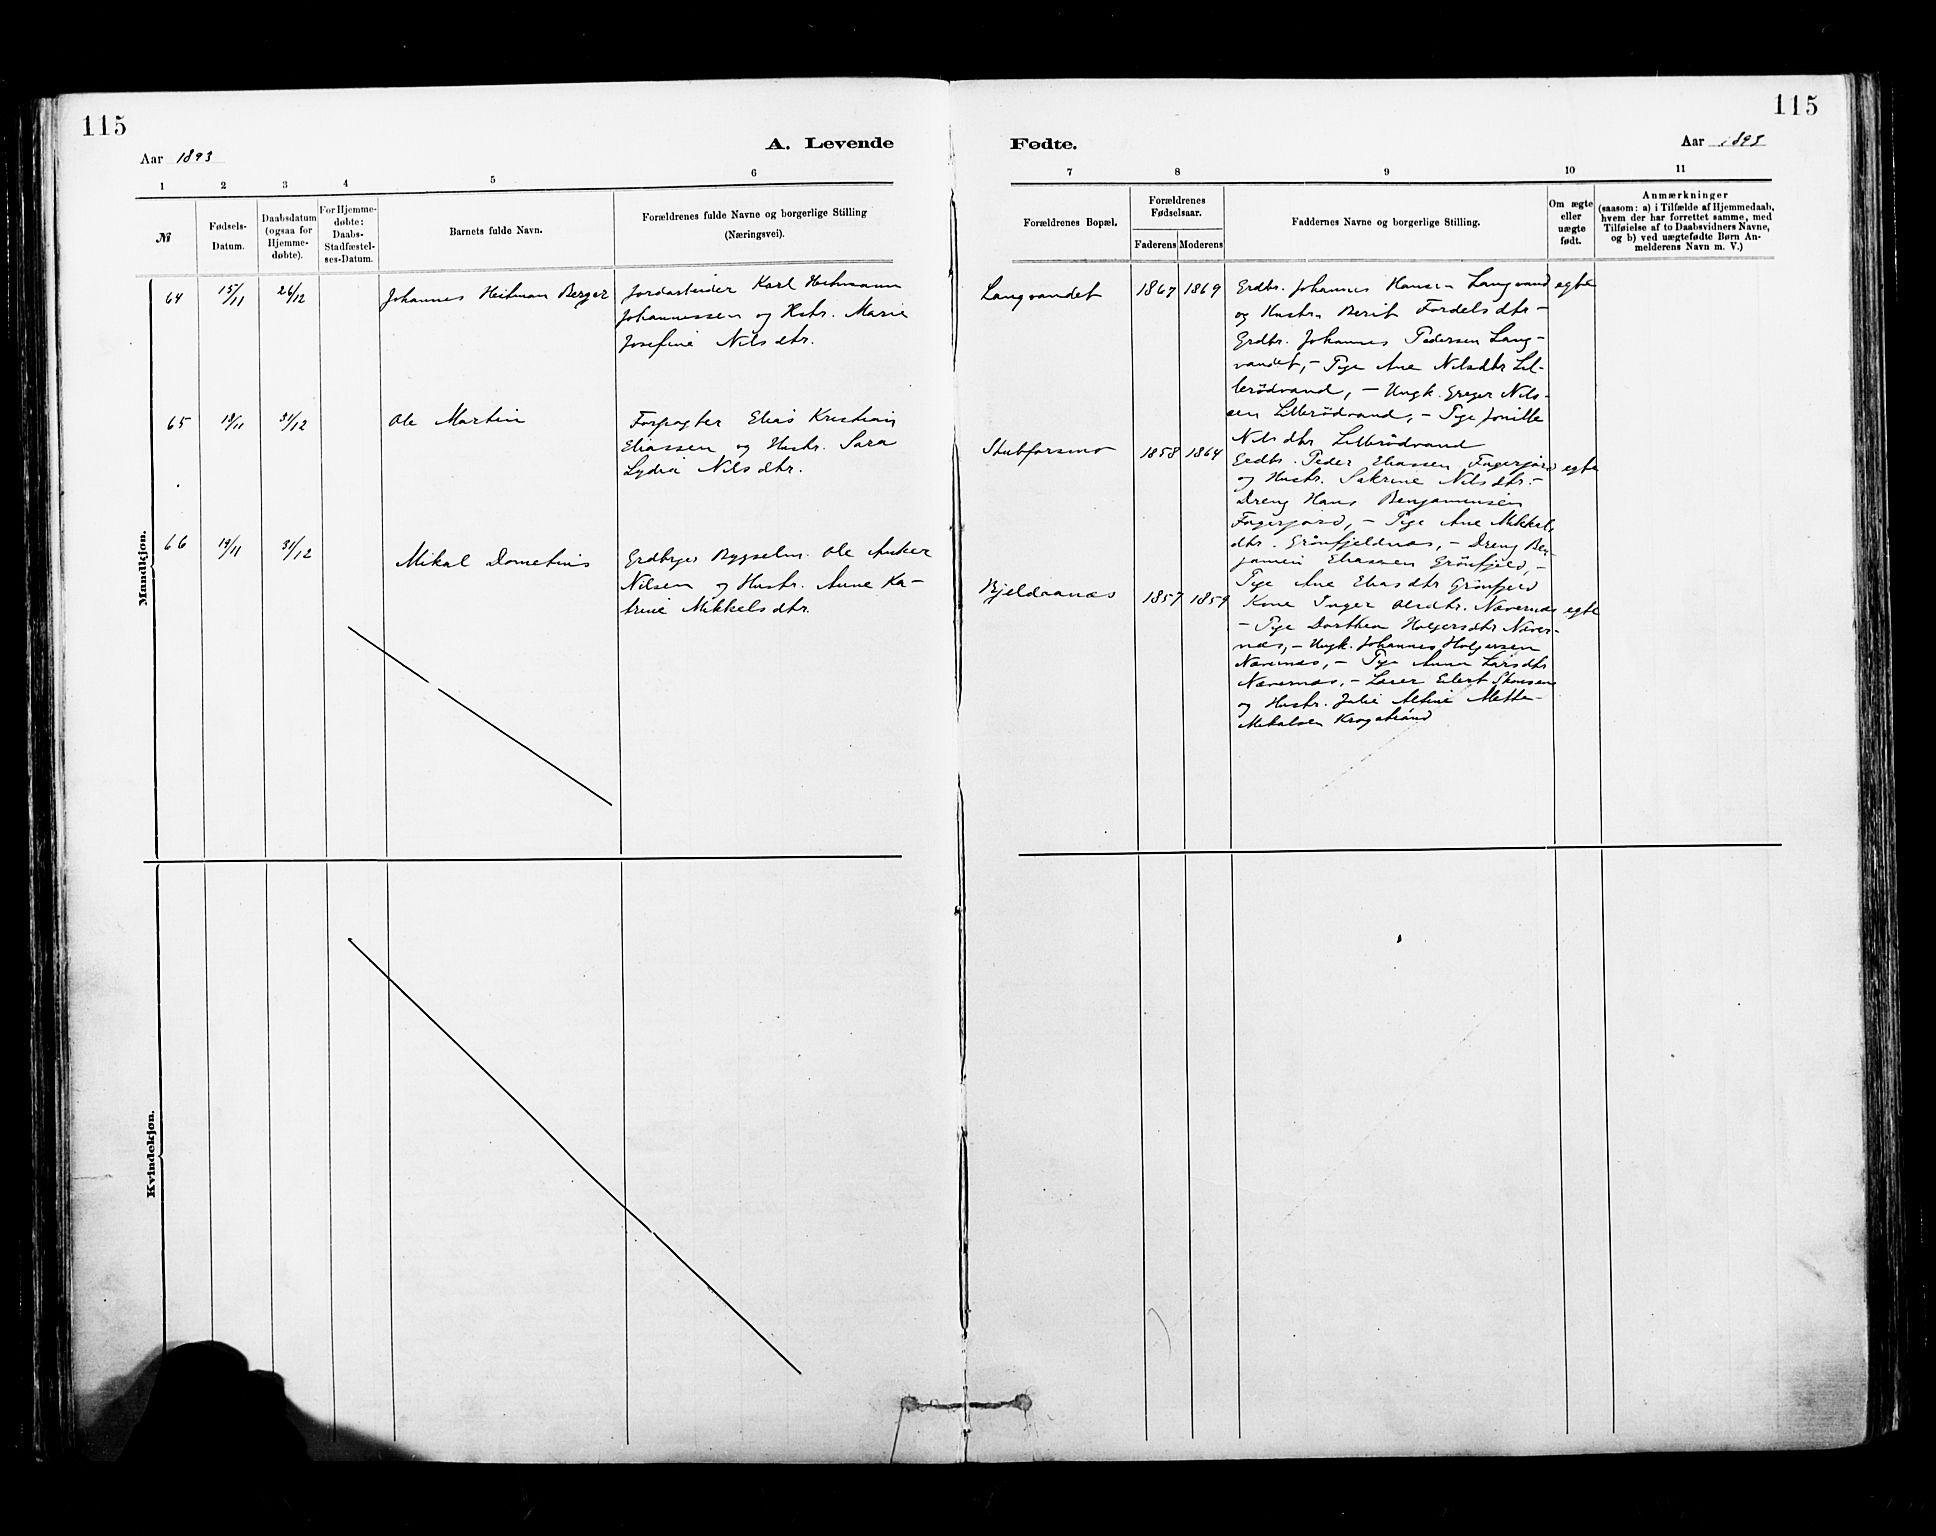 115
115
Aar 1893
A. Levende
Fødte.
Aar 1893
1 2 3 4 5 6
7 8 9 10 11
№
Fødsels-
Datum.
Daabsdatum
(ogsaa for
Hjemme-
døbte).
For Hjemme-
døbte:
Daabs-
Stadfæstel-
ses-Datum.
Barnets fulde Navn.
Forældrenes fulde Navne og borgerlige Stilling
(Næringsvei).
Forældrenes Bopæl.
Forældrenes
Fødselsaar.
Faderens Moderens
Faddernes Navne og borgerlige Stilling.
Om ægte
eller
uægte
født.
Anmærkninger
(saasom: a) i Tilfælde af Hjemmedaab,
hvem der har forrettet samme, med
Tilføielse af to Daabsvidners Navne,
og b) ved uægtefødte Børn An-
melderens Navn m. V.)
Mandkjøn.
64 15/11 26/12
Johannes Heitman Berger
Jordarbeider Karl Heitmann
Johannessen og Hstr. Marie
Josefine Nilsdtr.
Langvandet 1867 1869
Grdbr. Johannes Hansen Langvand
og Hustru Berit Fordelsdtr -
Grdbr. Johannes Pedersen Lang-
vandet, - Pige Ane Nilsdtr Lil-
lerödvand, - Ungk. Greger Nils-
sen Lillerödvand, - Pige Jonille
Nilsdtr Lillerödvand
egte
65 /11 31/12
Ole Martin
Forpagter Elias Kristian
Eliassen og Hustr. Sara
Lydia Nilsdtr.
Stubforsmo 1858 1864
Grdbr. Peder Eliassen Fagerjord
og Hustr. Sakrine Nilsdtr. -
Dreng Hans Benjaminsen
Fagerjord, - Pige Ane Mikkels
dtr. Grönfjeldnæs, - Dreng Ben-
jamin Eliassen Grönfjeld, -
Pige Ane Eliasdtr Grönfjeld
egte
66 19/11 31/12
Mikal Dometius
Grdbryger Bygselm. Ole Anker
Nilsen og Hustr. Anne Ka-
trine Mikkelsdtr.
Bjeldaanæs 1857 1859
Kone Inger Olsdtr. Nævernæs
- Pige Dorthea Holgersdtr Næver-
næs, - Ungk. Johannes Holgersen
Nævernæs, - Pige Anna Larsdtr
Nævernæs, - Lærer Edert
og Hustr. Julie Altine Mette
Mikalsen Krogstrand
egte
Kvindekjøn.